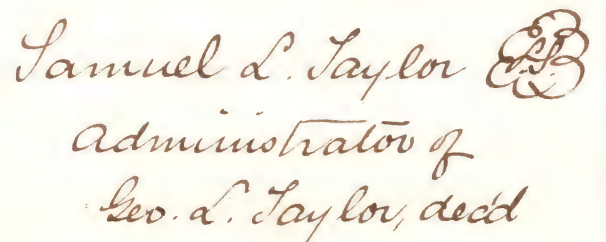 Samuel L. Taylor L.S.
Administrator of
Geo. L. Taylor, dec'd